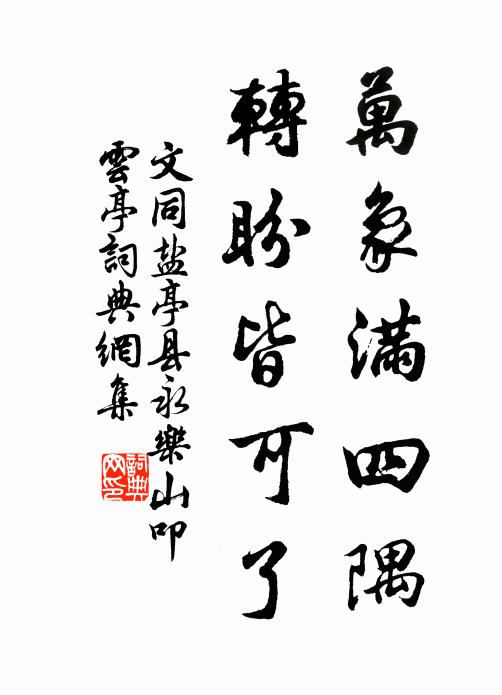 萬象满四隅
轉盼皆可了
文同盐亭县永樂山叩
雲亭詞典網集
詞典
网印